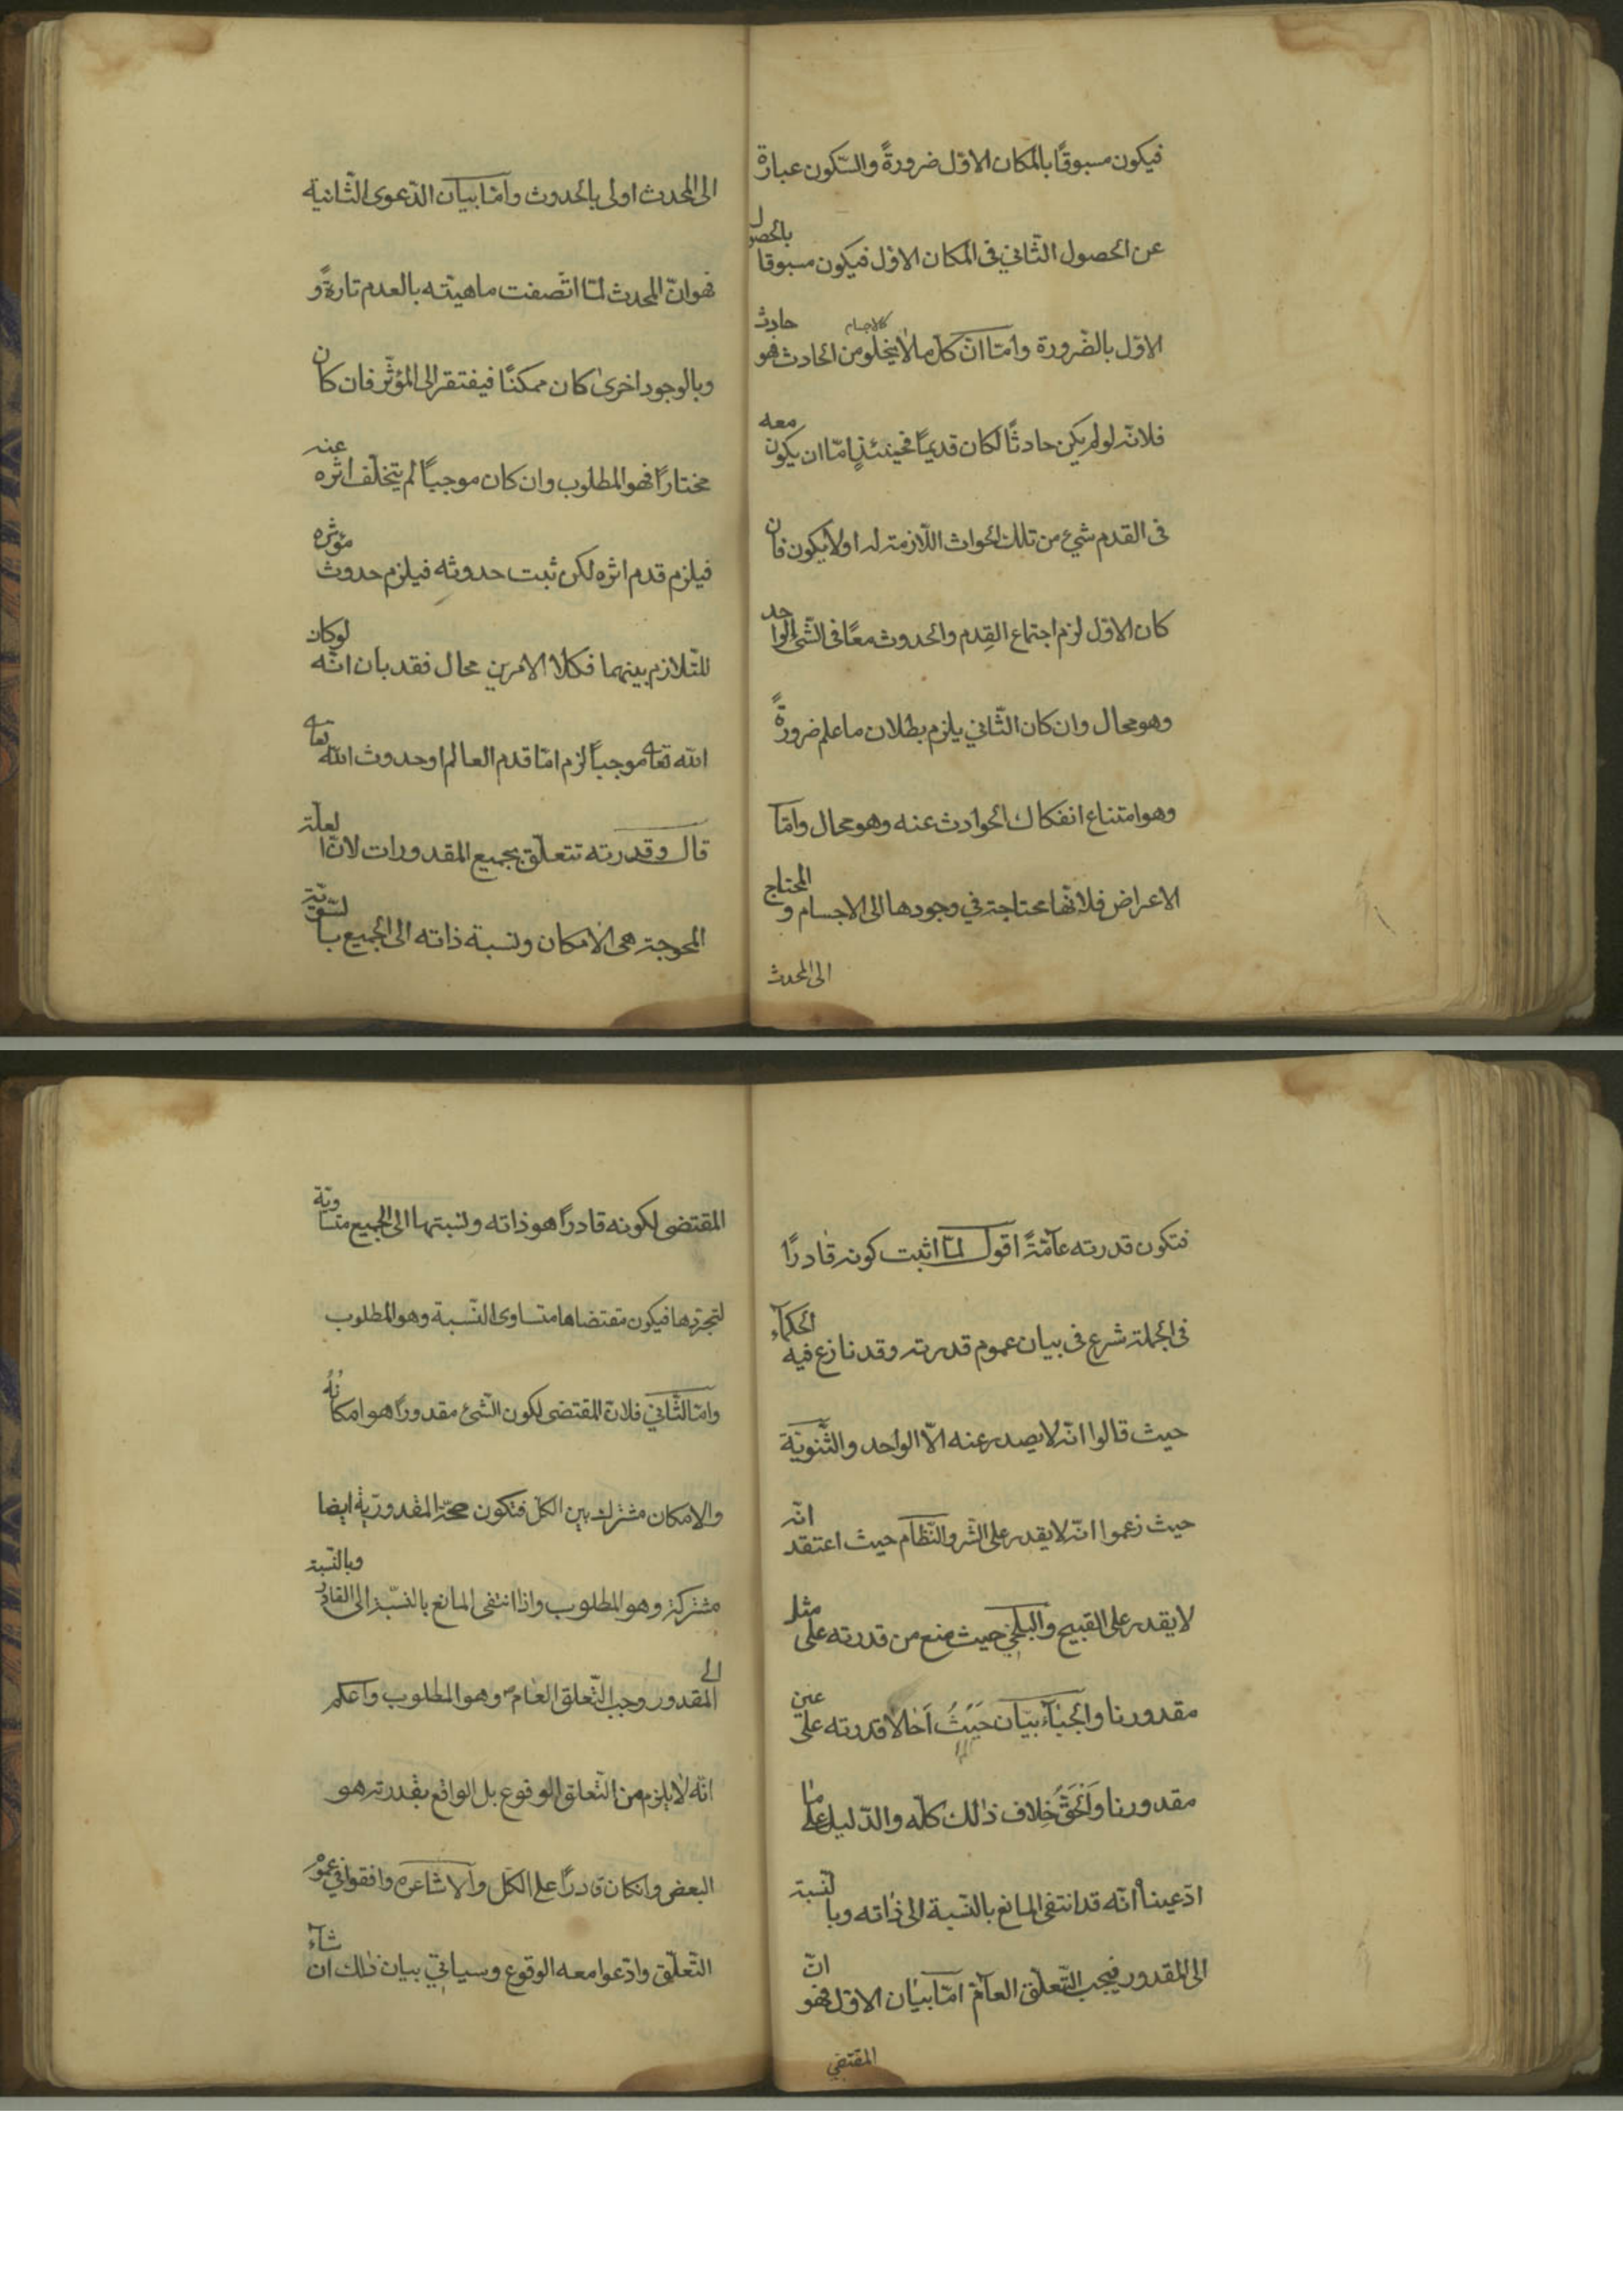 فيكون مسبوقًا بالمكان الاوّل ضرورةً والسّكون عبارة
عن الحصول الثّاني فى المكان الاوّل فيكون مسبوقا بالحصول
الاوّل بالضّرورة وامّا انّ كلّ ما لا يخلو من الحادث فهو حادث
كالاجسام
فلانّه لو لم يكن حادثًا لكان قديمًا فحينئذٍ امّا ان يكون معه
فى القدم شيئ من تلك الحواث اللّازمة له اولا يكون فان
كان الاوّل لزم اجتماع القِدم والحدوث معًا فى الشّئ الواحد
وهو محال وان كان الثّاني يلزم بطلان ما علم ضرورةً
وهو امتناع انفكاك الحوادث عنه وهو محال وامّا
الاعراض فلانّها محتاجة في وجودها الى الاجسام و المحتاج
الى المحدث
الى المحدث اولى بالحدوث وامّا بيان الدّعوى الثّانية
فهو انّ المحدث لمّا اتّصفت ماهيّته بالعدم تارةً و
وبالوجود اخرى كان ممكنًا فيفتقر الى المؤثّر فان كان
مختارًا فهو المطلوب وان كان موجبًا لم يتخلّف اثره عنه
فيلزم قدم اثره لكن ثبت حدوثه فيلزم حدوث مؤثره
للتّلازم بينهما فكلا الامرين محال فقد بان انّه لو كان
الله تعا موجبًا لزم امّا قدم العالم او حدوث الله تعا
قال وقدرته تتعلّق بجميع المقدورات لانّ العلّة
المحوجة هى الامكان ونسبة ذاته الى الجميع بالسّويّة
فتكون قدرته عامّةً اقول لمّا اثبت كونه قادرًا
فى الجملة شرع فى بيان عموم قدرته وقد نازع فيه الحكمآء
حيث قالوا انّه لا يصدر عنه الّا الواحد والثّنويّة
حيث زعموا انّه لا يقدر على الشّر والنّظّام حيث اعتقد انّه
لا يقدر على القبيح والبلخي حيث منع من قدرته على مثل
مقدورنا والجبّآءيّان حَيثُ اَحَالا قدرته على عين
مقدورنا وَالحَقُّ خِلاف ذٰلك كلّه والدّليل على ما
ادّعيناه انّه قد انتفى المانع بالنّسبة الى ذاته وبالنّسبة
الى المقدور فيجب التّعلّق العآمّ امّا بيان الاوّل فهو انّ
المقتضي
المقتضى لكونه قادرًا هو ذاته ونسبتها الى الجميع متساوية
لتجرّدها فيكون مقتضاها متساوى النّسبة وهو المطلوب
وامّا الثّاني فلانّ المقتضى لكون الشّئ مقدورًا هو امكانُهُ
والامكان مشترك بين الكلّ فتكون صحّة المقدوريّة ايضا
مشتركة وهو المطلوب واذا انتفى المانع بالنّسبة الى القادر وبالنّسبة
الى المقدور وجب التّعلق العام وهو المطلوب واعلم
انّه لا يلزم من التّعلق الوقوع بل الواقع بقدرته هو
البعض وانكان قادرًا على الكلّ والاشاعره وافقوا فى عموم
التّعلّق وادّعوا معه الوقوع وسياتي بيان ذٰلك ان شآء